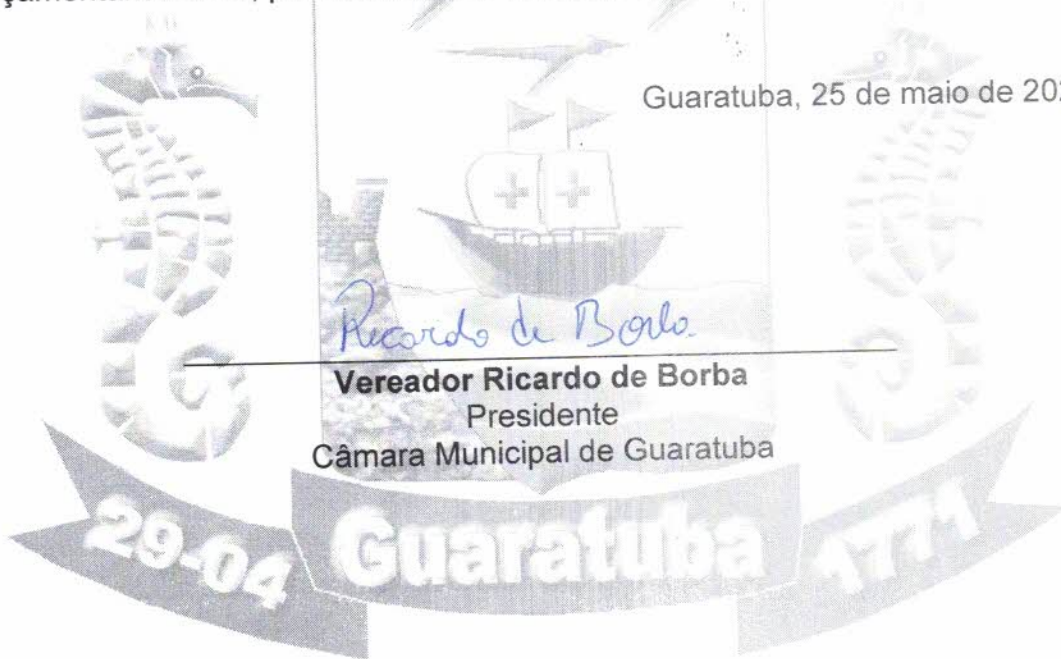 Guaratuba, 25 de maio de 202
Ricardo de Borba
Vereador Ricardo de Borba
Presidente
Câmara Municipal de Guaratuba
29-04 Guaratuba 1771